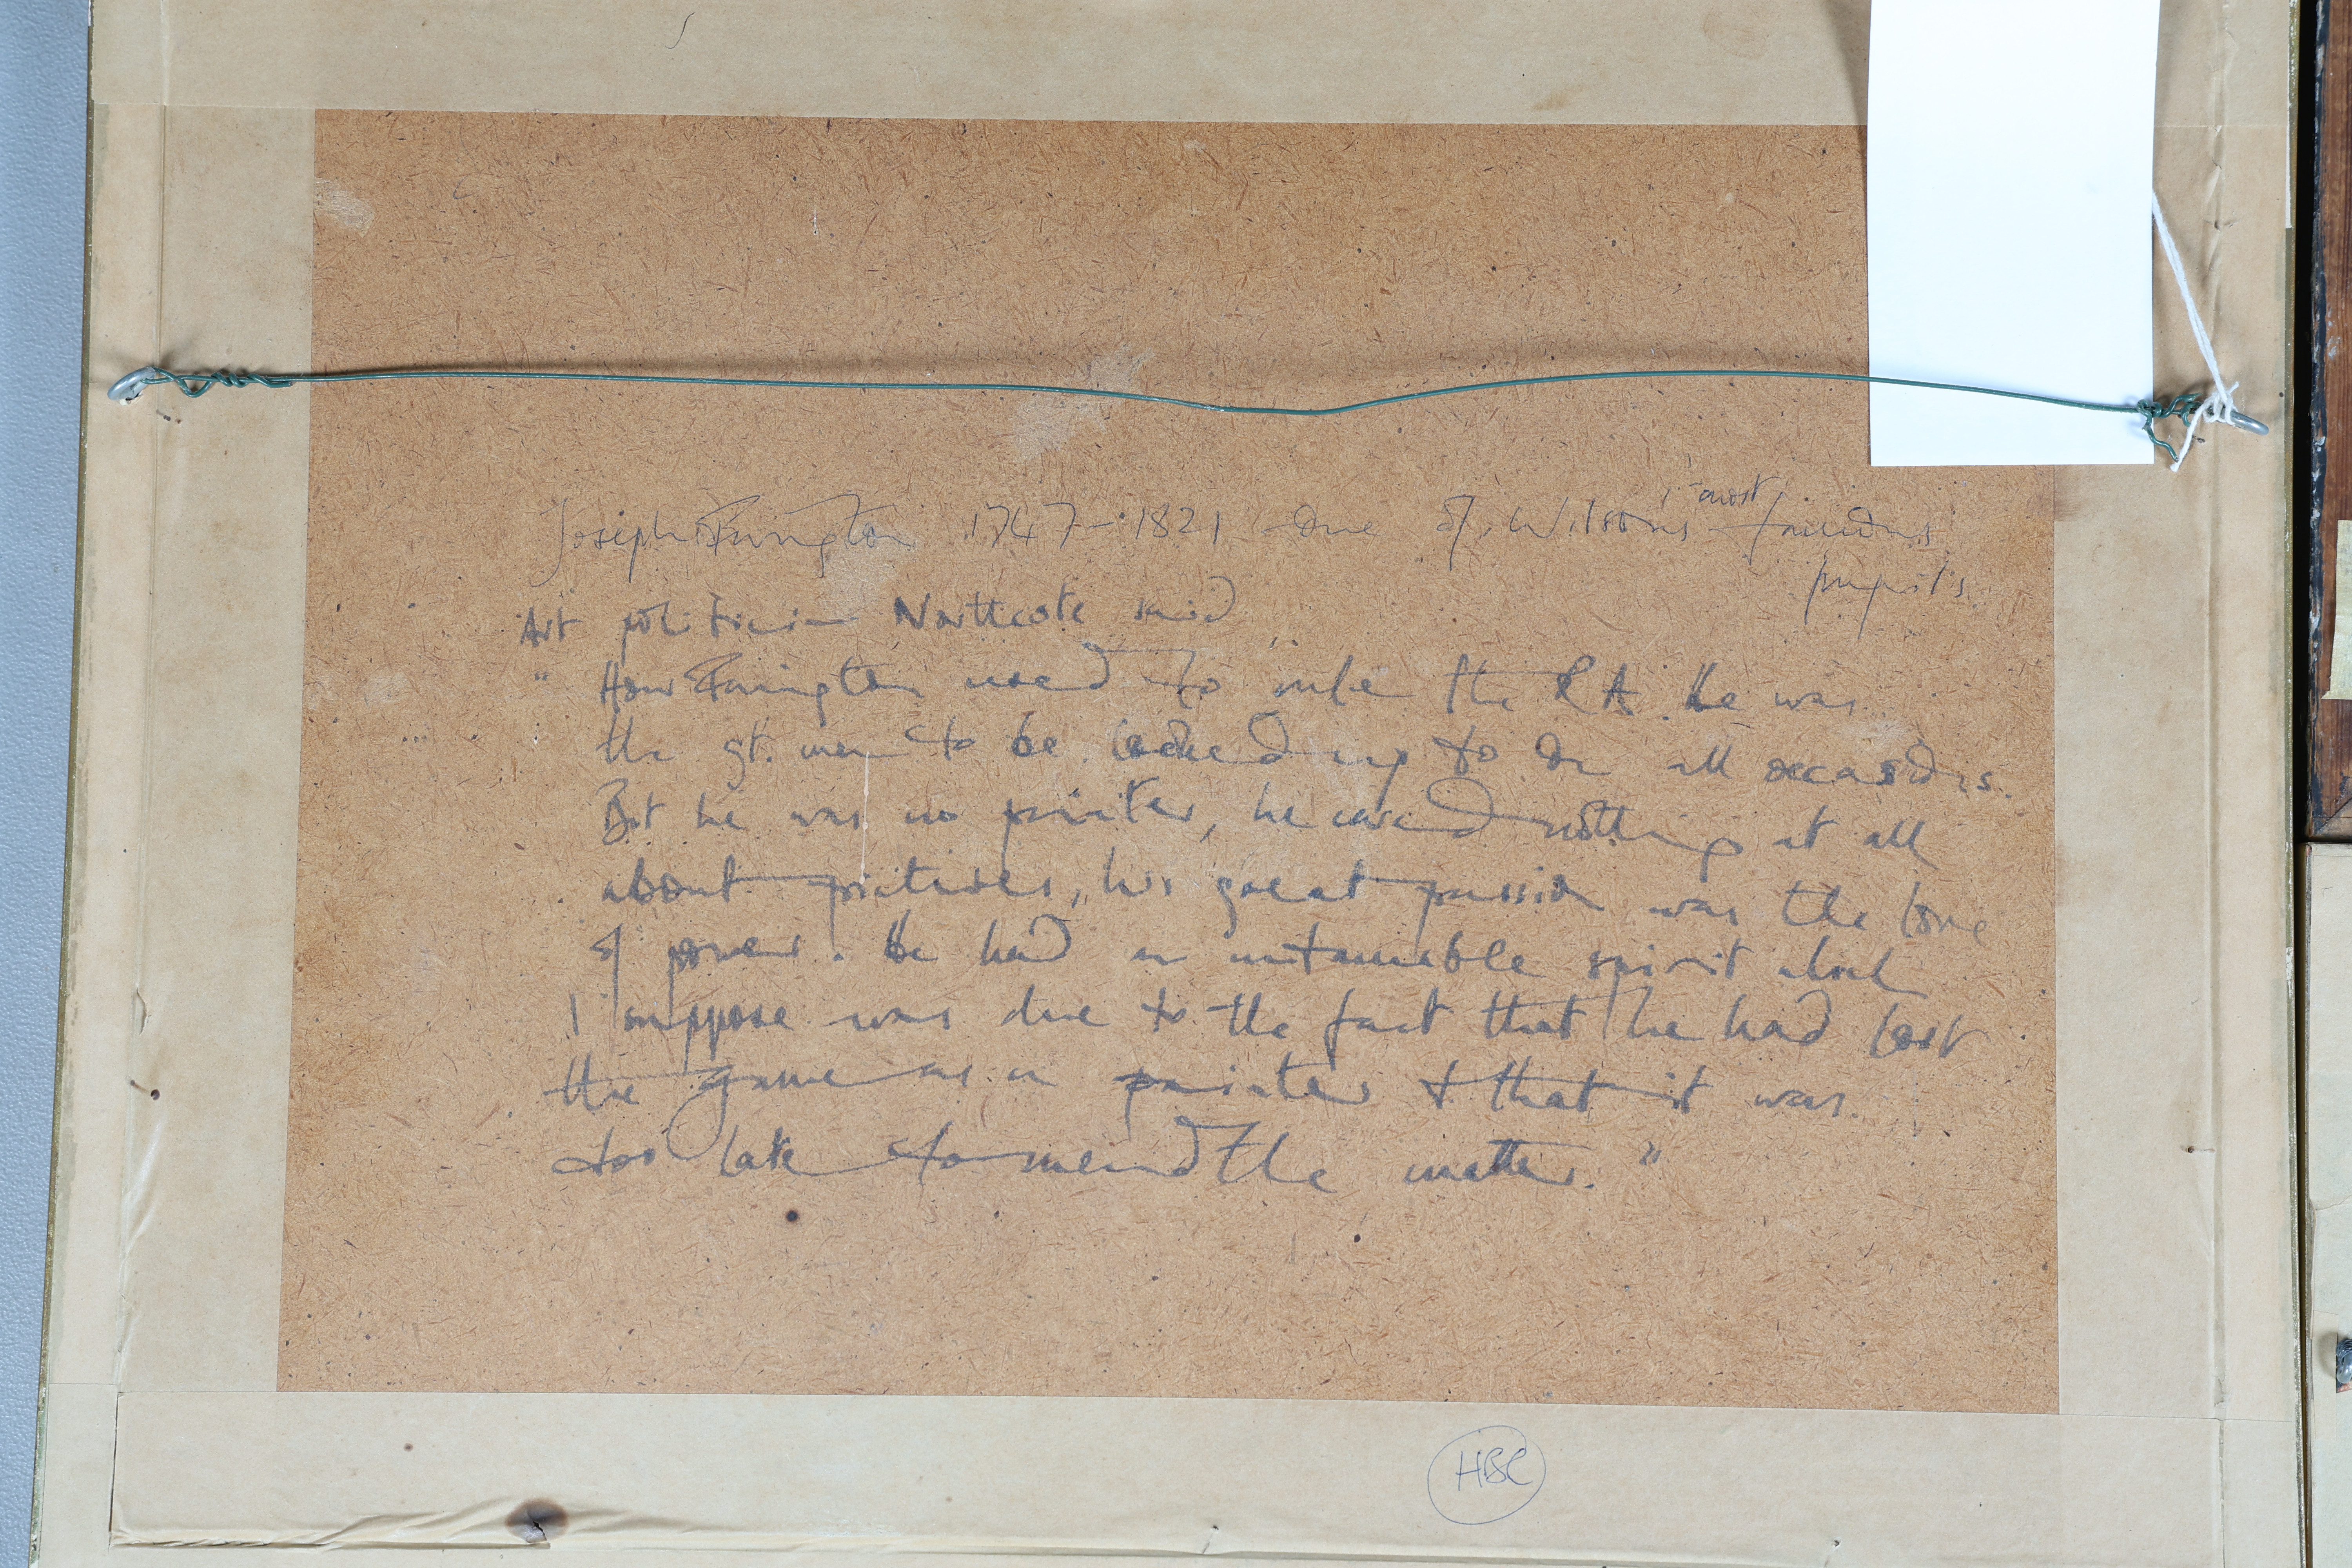 Joseph Farington 1747-1821 One of Wilsons most famous
pupils.
Art politician Northcote said
" How Farington used to rule the RA. He was
the gt. man to be looked up to on all occasions.
But he was no painter, he cared nothing at all
about pictures, his great passion was the love
of power. He had an untameable spirit which
I suppose was due to the fact that he had lost
the game as a painter & that it was
too late to mend the matter. "
HBC